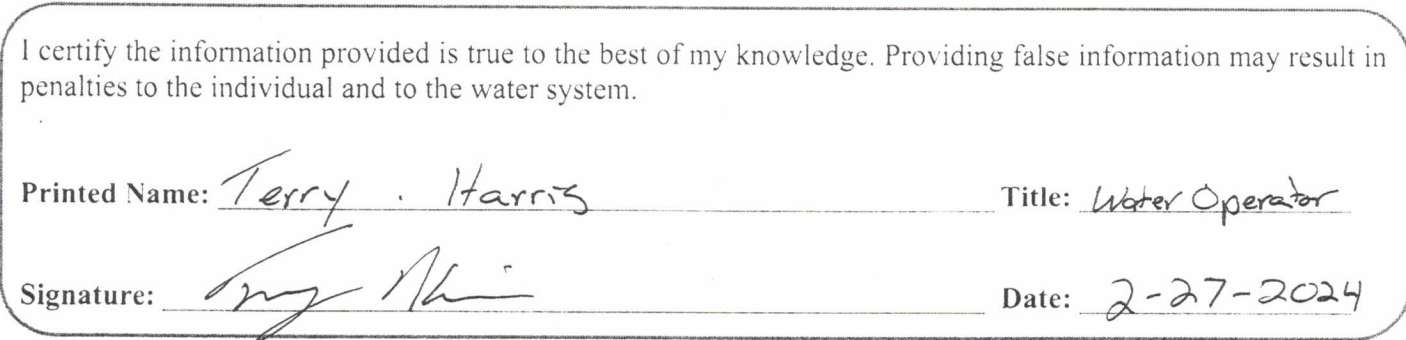 I certify the information provided is true to the best of my knowledge. Providing false information may result in
penalties to the individual and to the water system.
Printed Name: Terry . Harris Title: Water Operator
Signature: Date: 2-27-2024